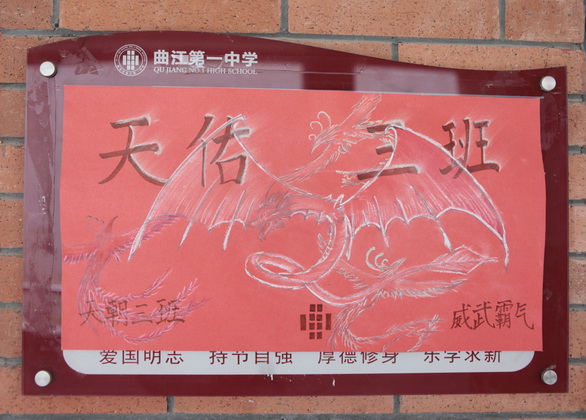 曲江第一中学
QU JIANG NO.1 HIGH SCHOOL
天佑 三班
天朝三班 威武霸气
爱国明志 持节自强 厚德修身 乐学求新